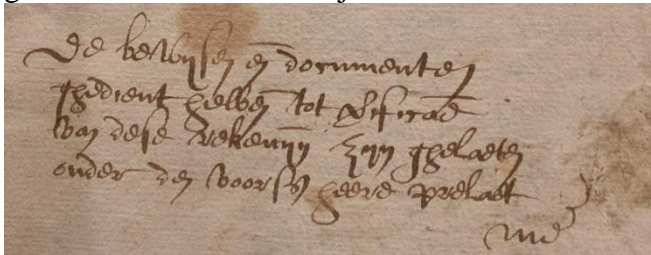 De bewijsen en documenten
ghedient hebben tot verificatie
van dese Rekeninge zijn ghelaeten
onder den voors heere prelaet